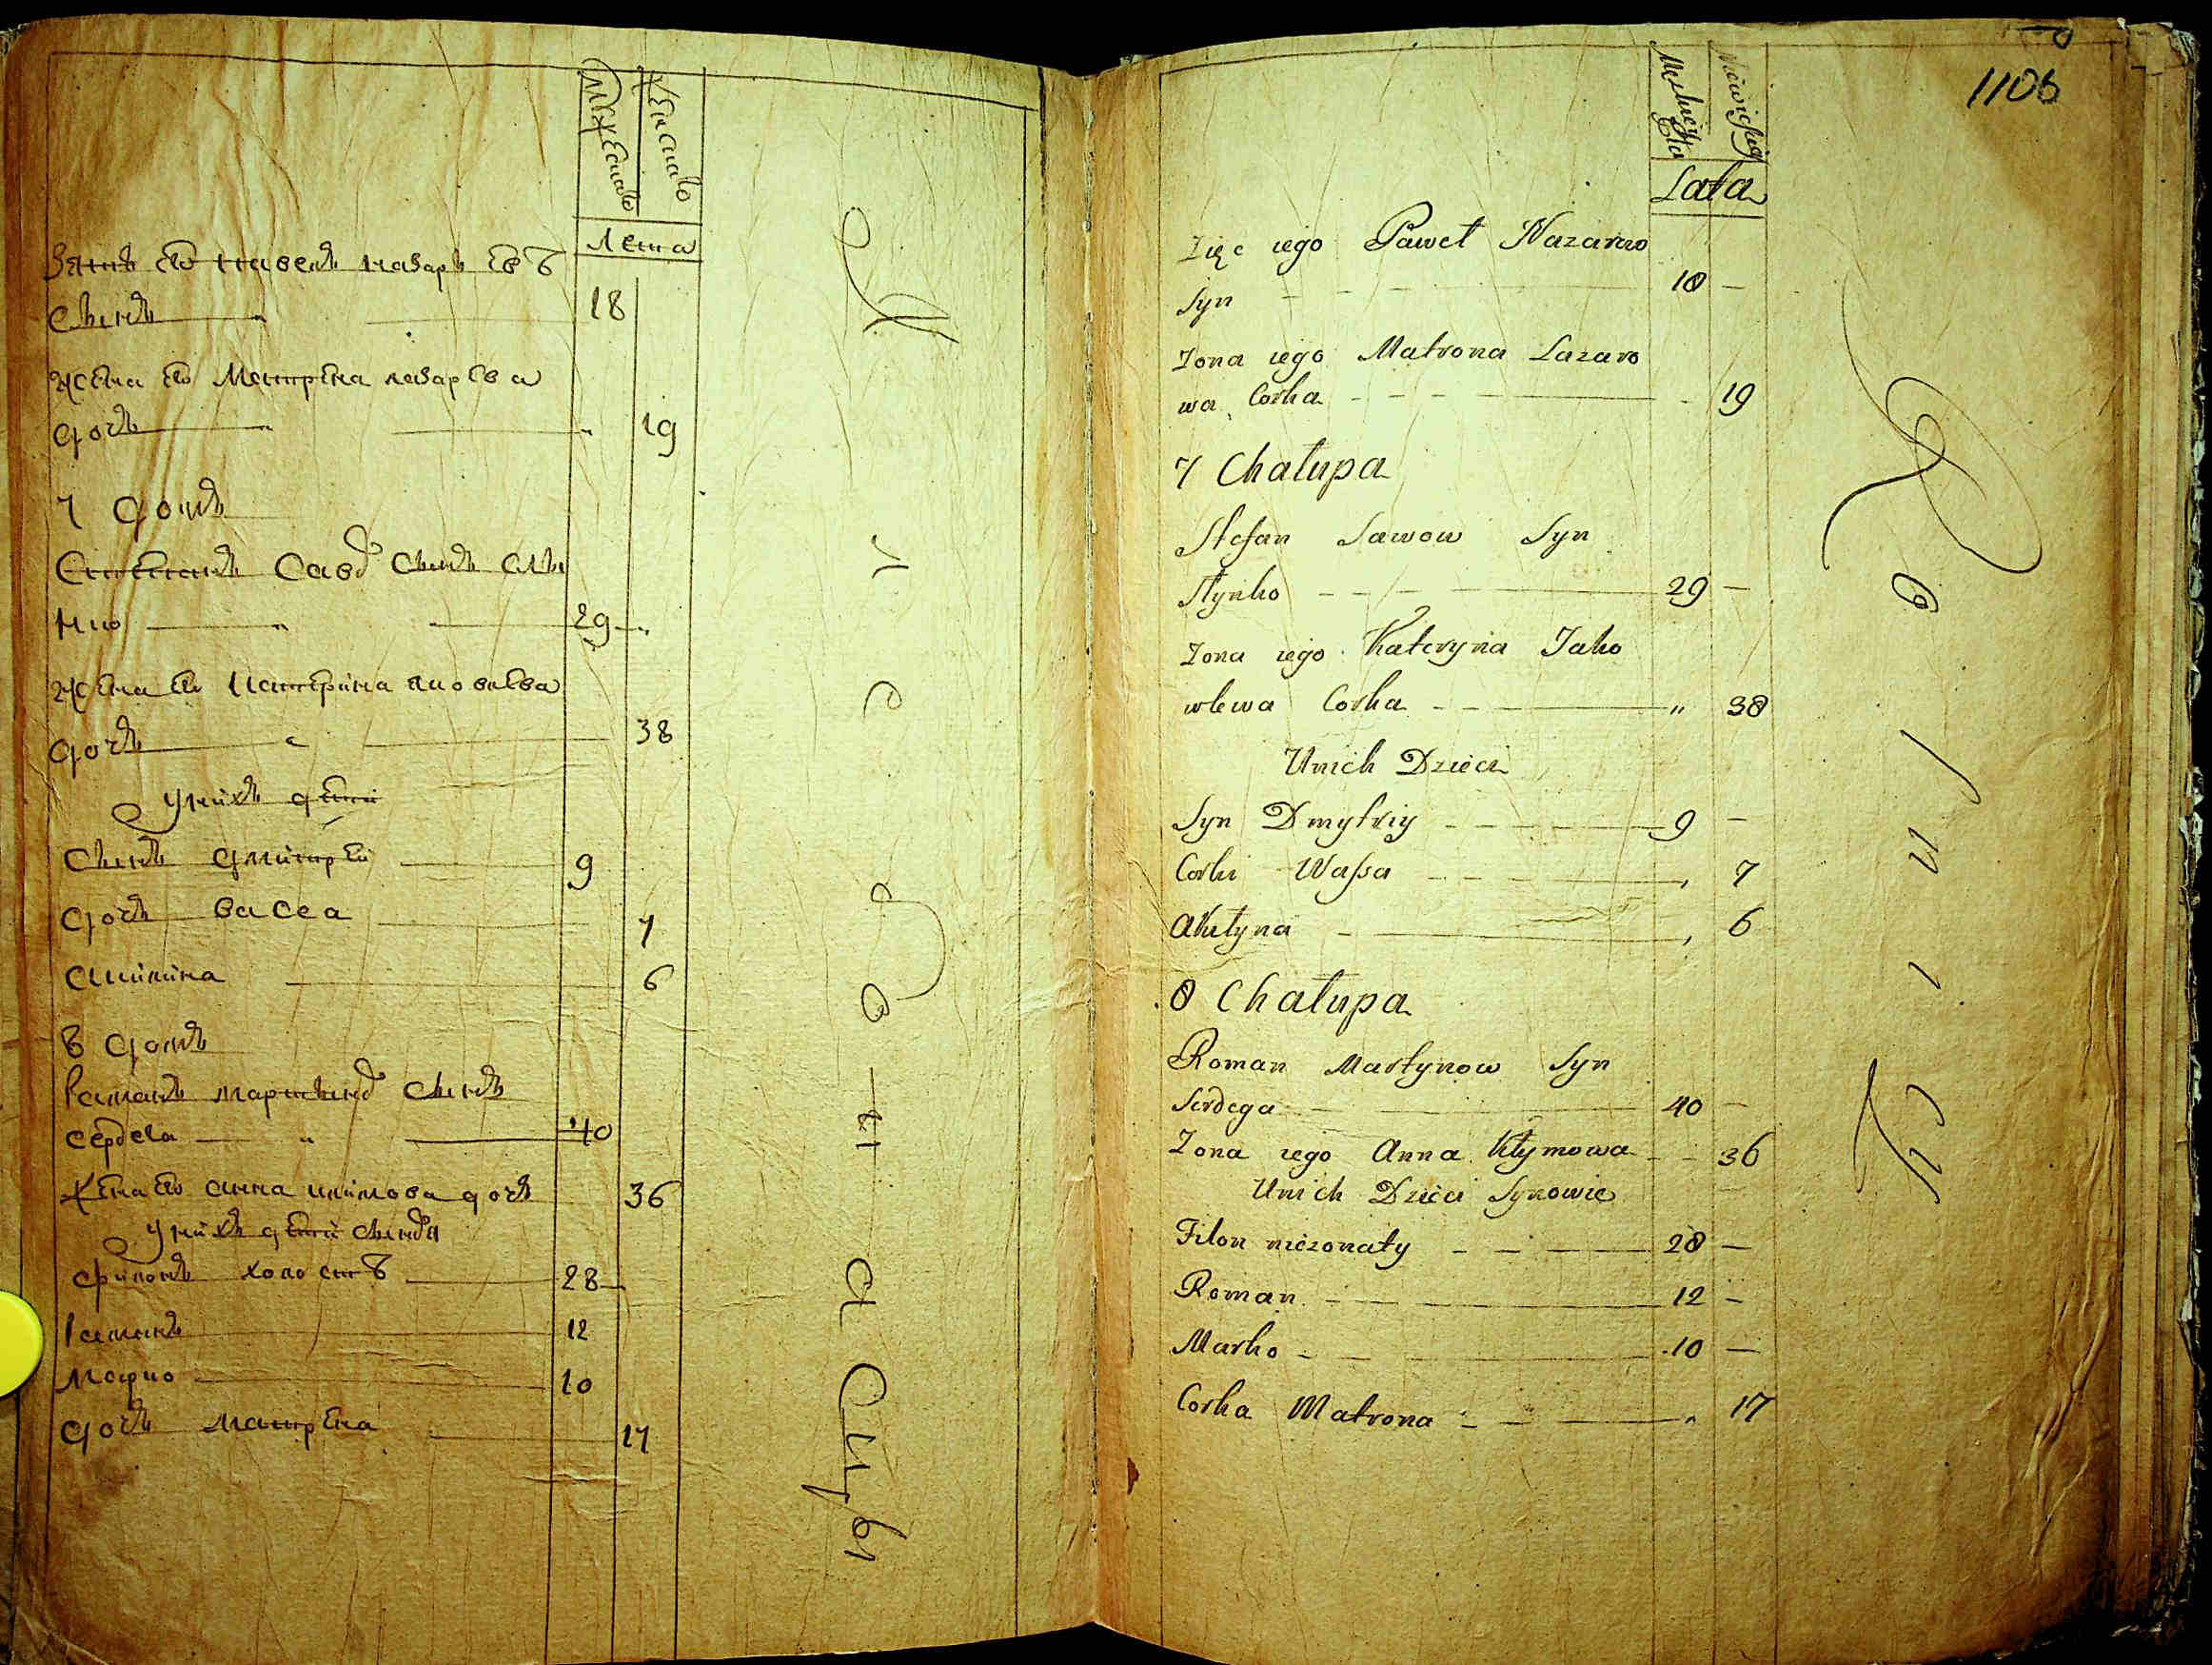 Мужеска
Женска
Лета
Зять его Павелъ назаровъ
Сынъ 18
жена его Матрена лазарева
дочь 19
7 домъ
Степанъ Савовъ Сынъ
29
жена его Катерина яковлева
дочь 38
у нихъ дети
Сынъ дмитрей 9
дочь васса 7
6
8 домъ
Романъ мартыновъ сынъ
сердега 40
жена его анна климова дочь 36
у нихъ дети сыновя
филонъ холостъ 28
Романъ 12
марко 10
дочь матрена 17
1106
Lata
Zięc iego Paweł Nazarow
Syn 18
Zona iego Matrona Lazaro
wa Corka 19
7 Chałupa
Stefan Sawow Syn
29
Zona iego Kateryna Jako
wlewa Corka „ 38
Unich Dzieci
Syn Dmytriy 9
Corki Wassa 7
Akulyna 6
8 Chałupa
Roman Martynow Syn
Serdega 40
Zona iego Anna Kłymowa 36
Unich Dzieci Synowie
Filon niezonaty 28
Roman 12
Marko 10
Corka Matrona 17